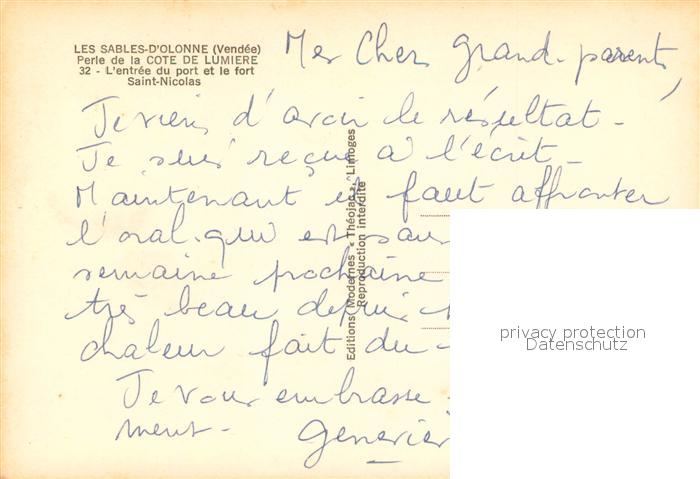 LES SABLES-D'OLONNE (Vendée)
Perle de la COTE DE LUMIERE
32 - L'entrée du port et le fort
Saint-Nicolas
Mes Chers grand-parents,
Je viens d'avoir le résultat-
Je suis reçue à l'écrit-
Maintenant il faut affronter
l'oral qui est
semaine prochaine
très beau depuis
chaleur fait du
Je vous embrasse
ment-
Editions Modernes « Théojac », Limoges
Reproduction interdite
privacy protection
Datenschutz